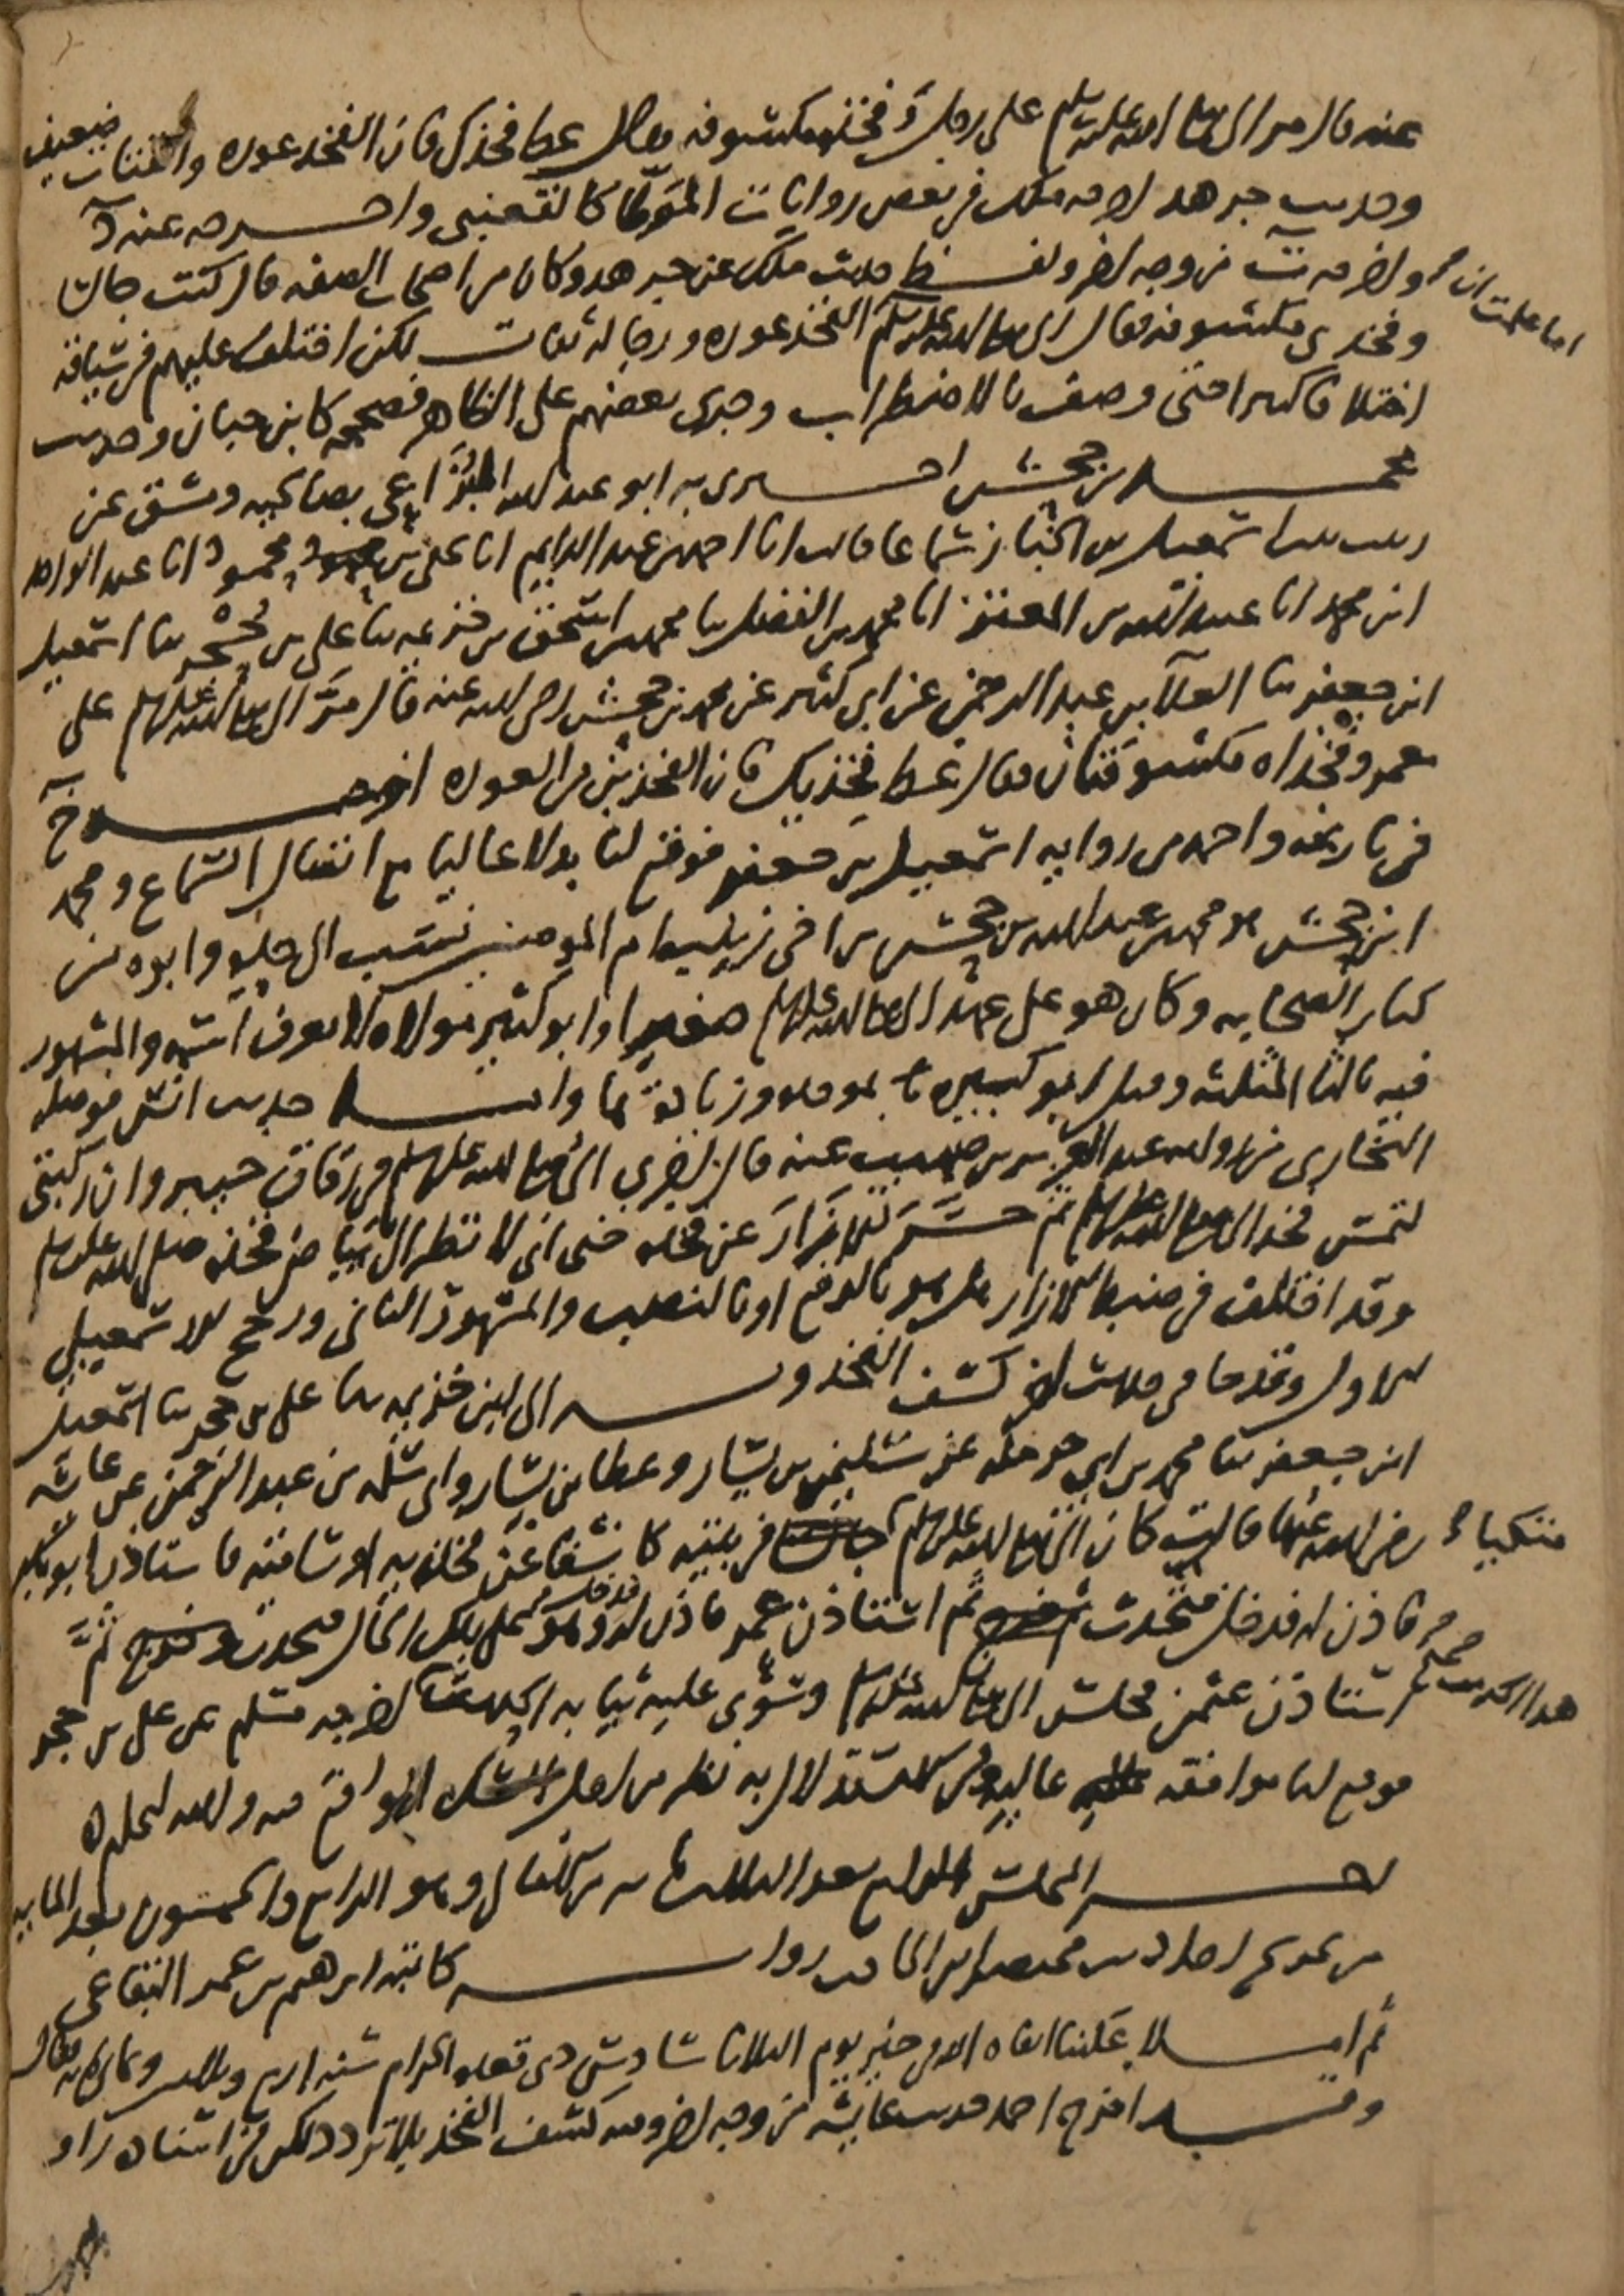 عنه قال مر النبي صلى الله عليه وسلم على رجل وفخذه مكشوفة فقال غط فخذك فان الفخذ عورة والقتات ضعيف
وحديث جرهد اخرجه ملك في بعض روايات الموطا كالقعنبي واخرجه عنه د
واخرجه ت من وجه اخر ولفظ حديث ملك عن جرهد وكان من اصحاب الصفة قال كنت جالسا
وفخذي مكشوفة فقال النبي صلى الله عليه وسلم اما علمت ان الفخذ عورة ورجاله ثقات لكن اختلف عليهم في سياقه
اختلافا كثيرا حتى وصف بالاضطراب وجرى بعضهم على الظاهر فصححه كابن حبان وحديث
محمد بن جحش اخبرني به ابو عبد الله بصالحية دمشق عن
زينب بنت اسمعيل بن الخباز سماعا قالت انا احمد بن عبد الدايم انا علي بن محمود انا عبد الواحد
ابن محمد انا عبيد الله بن المعتز انا محمد بن الفضل ثنا محمد بن اسحق بن خزيمة ثنا علي بن حجر ثنا اسمعيل
ابن جعفر ثنا العلا بن عبد الرحمن عن ابي كثير عن محمد بن جحش رضي الله عنه قال مر النبي صلى الله عليه وسلم على
معمر وفخذاه مكشوفتان فقال غط فخذيك فان الفخذين من العورة اخرجه خ
في تاريخه واحمد من رواية اسمعيل بن جعفر فوقع لنا بدلا عاليا مع اتصال السماع ومحمد
ابن جحش هو محمد بن عبد الله بن جحش بن اخي زينب ام المومنين نسب الى جده وابوه من
كبار الصحابة وكان هو على عهد النبي صلى الله عليه وسلم صغيرا وابو كثير مولاه لا يعرف اسمه والمشهور
فيه بالثا المثلثة وقيل ابو كبيرة بموحدة وزيادة ها واما حديث انس فوصله
البخاري من رواية عبد العزيز بن صهيب عنه قال اجرى النبي صلى الله عليه وسلم في زقاق خيبر وان ركبتي
لتمس فخذ النبي صلى الله عليه وسلم ثم حسر الازار عن فخذه حتى اني لانظر الى بياض فخذه صلى الله عليه وسلم
وقد اختلف في ضبط الازار هل هو بالرفع او بالنصب والمشهور الثاني ورجح الاسمعيلي
الاول وقد جا في حديث اخر كشف الفخذ وبه الى ابن خزيمة ثنا علي بن حجر ثنا اسمعيل
ابن جعفر ثنا محمد بن ابي حرملة عن سليمن بن يسار وعطا بن يسار وابي سلمة بن عبد الرحمن عن عائشة
رضي الله عنها قالت كان النبي صلى الله عليه وسلم متكيا في بيته كاشفا عن فخذيه او ساقيه فاستاذن ابو بكر
فاذن له فدخل فتحدث ثم استاذن عمر فاذن له فدخل وهو على تلك الحال فتحدث ثم
استاذن عثمن فجلس النبي صلى الله عليه وسلم وسوى عليه ثيابه الحديث هذا حديث صحيح اخرجه مسلم عن علي بن حجر
فوقع لنا موافقة عالية وفي الاستدلال به نظر من اجل الشك الواقع فيه والله اعلم
اخر المجلس الرابع بعد الثلاثمائة من الامالي وهو الرابع والخمسون بعد المايه
من تخريج احاديث مختصر ابن الحاجب رواية كاتبه ابرهيم بن عمر البقاعي
ثم املا علينا ابقاه الله في خير يوم الثلاثا سادس ذي قعدة الحرام سنة اربع وثلاثين وثمانمائة فقال
وقد اخرج احمد حديث عايشة من وجه اخر وفيه كشف الفخذ بلا تردد لكن في اسناده راو